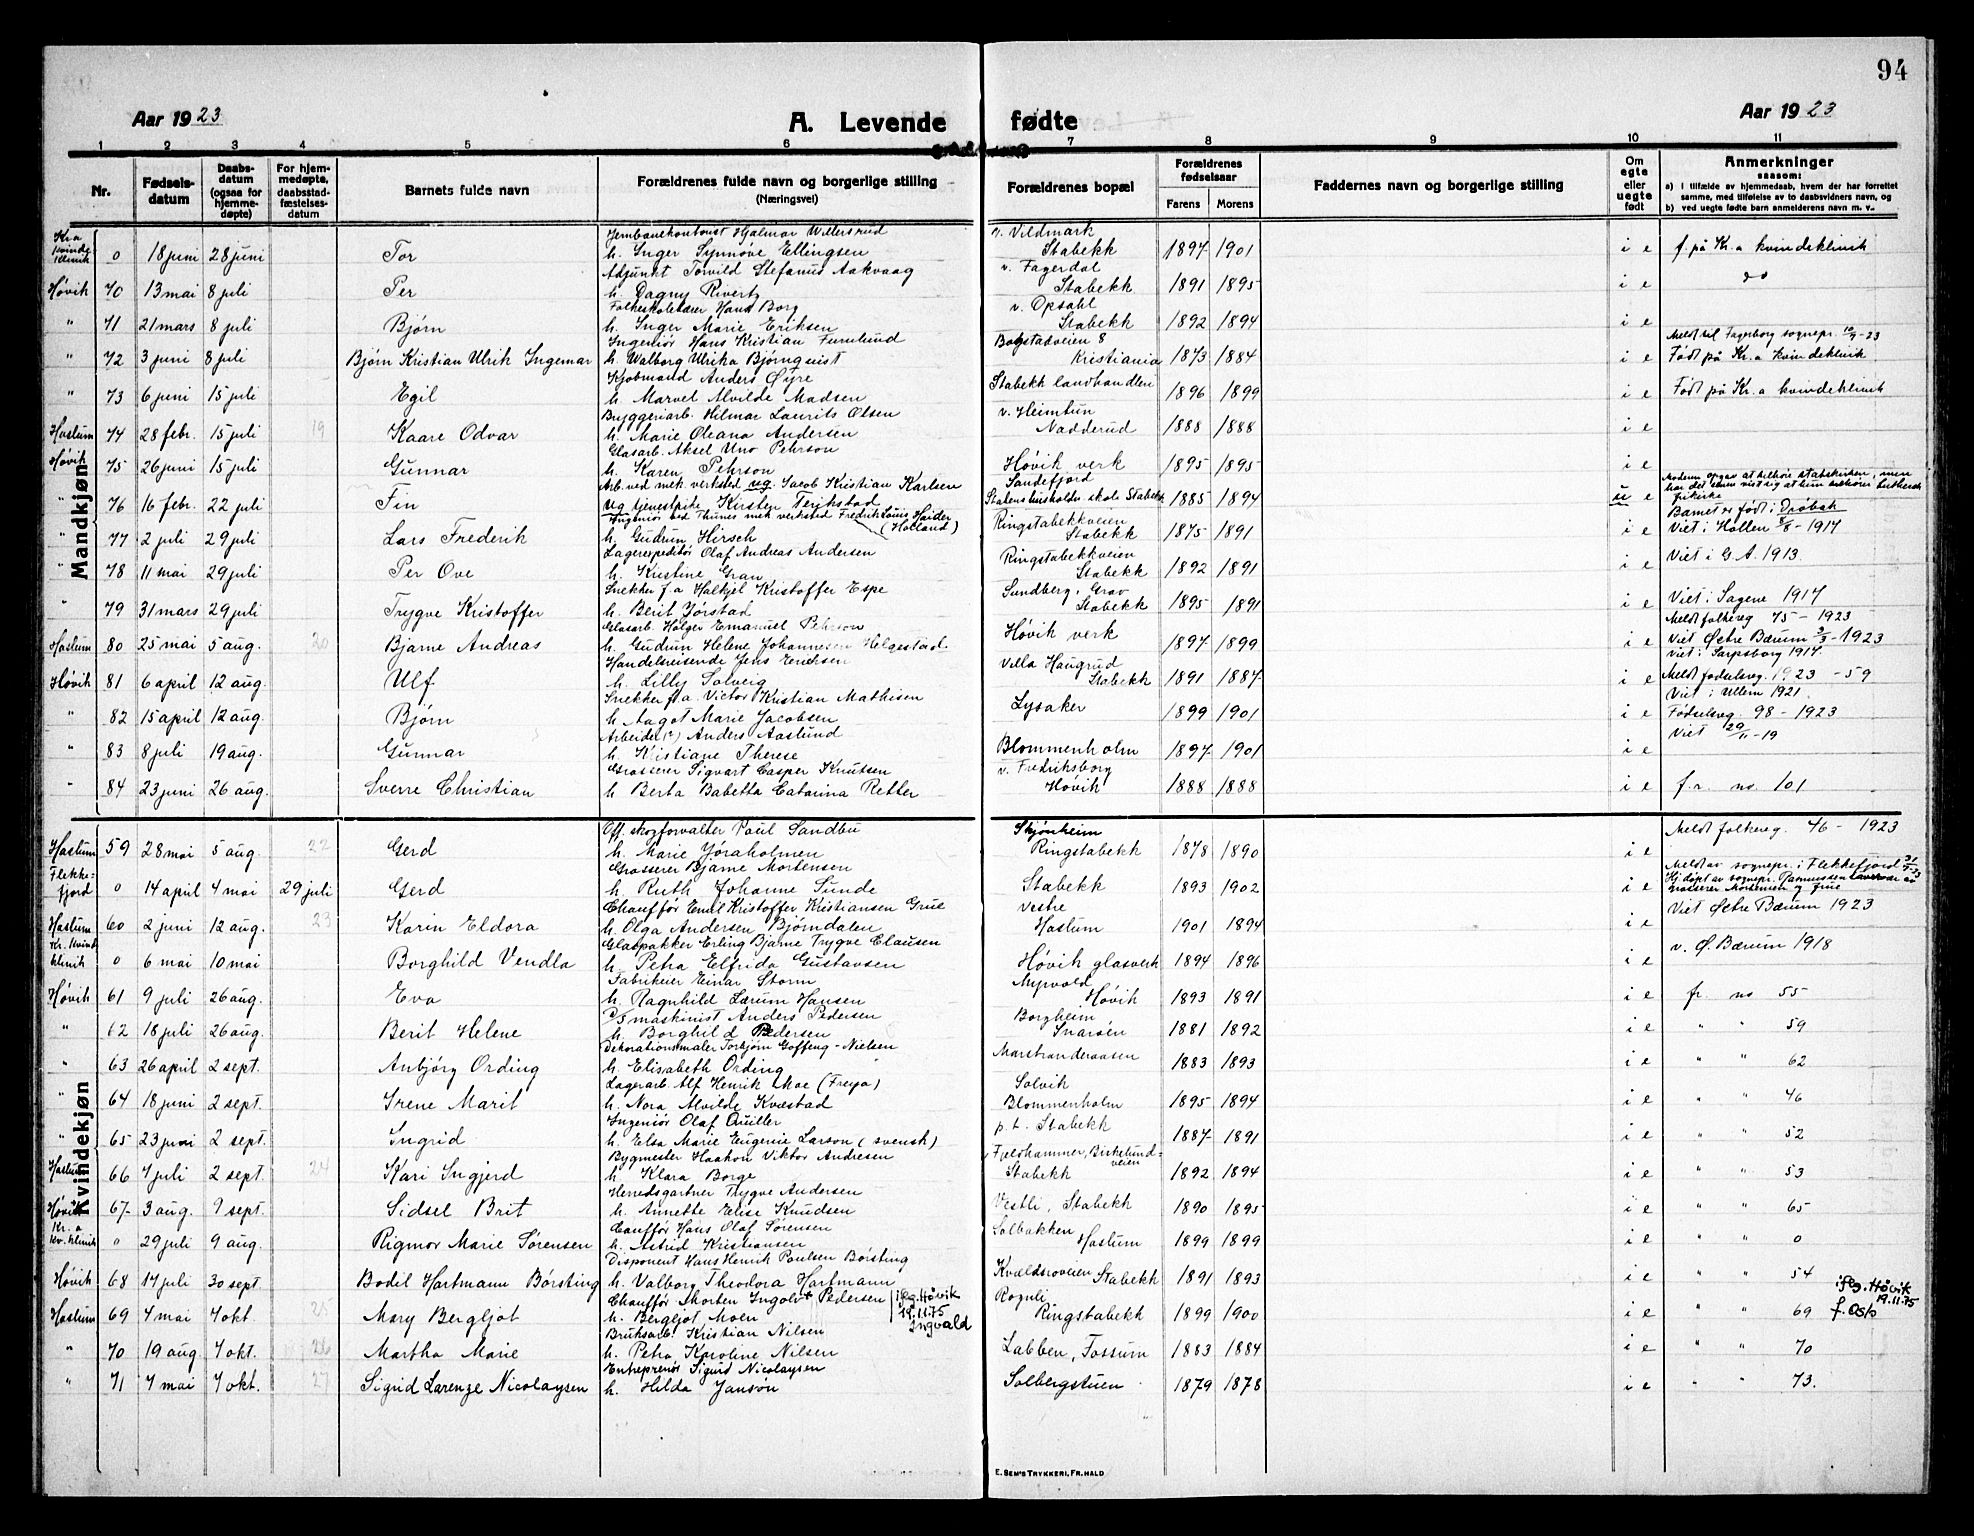 94
Aar 1923 A. Levende fødte Aar 1923
1 2 3 4 5 6 7 8 9 10 11
Nr. Fødselsdatum Daabsdatum (ogsaa for hjemmedøpte) For hjemmedøpte, daabsstadfæstelsesdatum Barnets fulde navn Forældrenes fulde navn og borgerlige stilling (Næringsvei) Forældrenes bopæl Forældrenes fødselsaar Farens Morens Faddernes navn og borgerlige stilling Om egte eller uegte født Anmerkninger saasom:
a) i tilfælde av hjemmedaab, hvem der har forrettet samme, med tilføielse av to daabsvidners navn, og
b) ved uegte fødte barn anmelderens navn m. v.
Mandkjøn
Kra kvinde klinik 0 18 juni 28 juni Tor Jernbanekontorist Hjalmar Willersrud v. Vildmark
h. Inger Synnøve Ellingsen Stabekk 1897 1901 i e f. på Kr.a kvindeklinik
Adjunkt Torvild Stefanus Aakvaag v. Fagerdal
Høvik 70 13 mai 8 juli Per h. Dagny Rivertz Stabekk 1891 1895 i e do
Folkeskolelærer Hans Borg v. Opsahl
" 71 21 mars 8 juli Bjørn h. Inger Marie Eriksen Stabekk 1892 1894 i e
Ingeniør Hans Kristian Furulund Bogstadveien 8 Meldt til Fagerborg sognepr. 10/9-23
" 72 3 juni 8 juli Bjørn Kristian Ulrik Ingemar h. Walborg Ulrika Bjørnquist Kristiania 1873 1884 i e Født på Kr.a kvindeklinik
Kjøbmand Anders Øyre Stabekk landhandleri
" 73 6 juni 15 juli Egil h. Marvel Alvilde Madsen 1896 1899 i e Født på Kr.a kvindeklinik
Byggeriarb. Hilmar Laurits Olsen v. Heimtun
Haslum 74 28 febr. 15 juli 19 Kaare Odvar h. Marie Oleana Andersen Nadderud 1888 1888 i e
Glasarb. Aksel Uno Pehrson
Høvik 75 26 juni 15 juli Gunnar h. Karen Pehrson Høvik verk 1895 1895 i e
Arb. ved mek. verksted ug. Jacob Kristian Karlsen Sandefjord Moderen opgav at tilhøre statskirken, men
" 76 16 febr. 22 juli Fin ug tjenestepike Kirsten Terjkstad Statens husholdn. skole Stabekk 1885 1894 u e har det senere vist sig at hun tilhører Luthersk frikirke
Ingeniør ved Thunes mek verksted Fredrik Louis Haider (Holland) Ringstabekkveien Barnet er født i Drøbak
" 77 2 juli 29 juli Lars Frederik h. Gudrun Hirsch Stabekk 1875 1891 i e Viet i Hollen 8/8-1917
Lagerexpeditør Olaf Andreas Andersen Ringstabekkveien Viet i G. A. 1913.
" 78 11 mai 29 juli Per Ove h. Kristine Gran Stabekk 1892 1891 i e
Snekker f.a Halkjel Kristoffer Espe Sundberg, Grav
" 79 31 mars 29 juli Trygve Kristoffer h. Berit Jørstad Stabekk 1895 1891 i e Viet i Sagene 1917
Glasarb. Holger Emanuel Pehrson Meldt folkereg 75 - 1923
Haslum 80 25 mai 5 aug. 20 Bjarne Andreas h. Gudrun Helene Johannesen Helgestad Høvik verk 1897 1899 i e Viet Østre Bærum 3/3-1923
Handelsreisende Jens Eriksen Villa Haugrud viet i Sarpsborg 1917.
Høvik 81 6 april 12 aug. Ulf h. Lilly Solveig Stabekk 1891 1887 i e Meldt fødselsreg. 1923 - 59
Snekker f.a. Victor Kristian Mathisen Viet i Ullern 1921.
" 82 15 april 12 aug. Bjørn h. Aagot Marie Jacobsen Lysaker 1899 1901 i e Fødselsreg. 98 - 1923
Arbeider Anders Aaslund Viet 29/11-19
" 83 8 juli 19 aug. Gunnar h. Kristiane Therese Blommenholm 1897 1901 i e
Grosserer Sigvart Casper Knutsen v. Fredriksborg
" 84 23 juni 26 aug. Sverre Christian h. Berta Babetta Catarina Retter Høvik 1888 1888 i e f. r. no 101
Kvindekjøn
Off. skogforvalter Paul Sandbu Skjønheim Meldt folkereg. 46 - 1923
Haslum 59 28 mai 5 aug. 22 Gerd h. Marie Jøraholmen Ringstabekk 1878 1890 i e
Grosserer Bjarne Mortensen Meldt av sognepr. i Flekkefjord 31/7-23
Flekkefjord 0 14 april 4 mai 29 juli Gerd h. Ruth Johanne Sunde Stabekk 1893 1902 i e Hj.døpt av sognepr. Rasmussen
grosserer Mortensen og frue
Chauffør Emil Kristoffer Kristiansen Grue Vestre Viet Østre Bærum 1923
Haslum 60 2 juni 12 aug. 23 Karin Eldora h. Olga Andersen Bjørndalen Haslum 1901 1894 i e
Glaspakker Erling Bjarne Trygve Clausen v. Ø. Bærum 1918
Kr. kvind klinik 0 6 mai 10 mai Borghild Vendla h. Petra Elfrida Gustavsen Høvik glasverk 1894 1896 i e
Fabrikeier Einar Storm Myrvold
Høvik 61 9 juli 26 aug. Eva h. Ragnhild Lærum Hansen Høvik 1893 1891 i e fr. no 55
D/S maskinist Anders Pedersen Borgheim
" 62 18 juli 26 aug. Berit Helene h. Borghild Pedersen Snarøen 1881 1892 i e " " 59
Dekorationsmaler Torbjørn Goffeng-Nielsen Marstranderaasen
" 63 26 april 2 sept. Anbjørg Ording h. Elisabeth Ording 1883 1893 i e " " 62
Lagerarb. Alf Henrik Moe (Freya) Solvik
" 64 18 juni 2 sept. Irene Marit h. Nora Alvilde Kvæstad Blommenholm 1895 1894 i e " " 46
Ingeniør Olaf Quiller p. t. Stabekk
" 65 23 juni 2 sept. Ingrid h. Elsa Marie Eugenie Larson (svensk) 1887 1891 i e " " 52
Bygmester Haakon Viktor Andresen Fjeldhammer, Birkelundveien
Haslum 66 7 juli 2 sept. 24 Kari Ingjerd h. Klara Borge Stabekk 1892 1894 i e " " 53
Herredsgartner Trygve Andersen
Høvik 67 3 aug. 9 sept. Sidsel Brit h. Annette Elise Knudsen Vestli, Stabekk 1890 1895 i e " " 65
Cauffør Hans Olaf Sørensen Solbakken
Kr. a kv. klinik " 29 juli 9 aug. Rigmor Marie Sørensen h. Astrid Kristiansen Haslum 1899 1899 i e " " 0
Disponent Hans Henrik Paulsen Børsting
Høvik 68 17 juli 30 sept. Bodil Hartmann Børsting h. Valborg Theodora Hartmann Kvældsroveien Stabekk 1891 1893 i e " " 54
Chauffør Morten Ingolv+ Pedersen ifg. Høvik 19.11.75 Ingvald Roguli ifg. Høvik 19.11.75
Haslum 69 4 mai 7 okt. 25 Mary Bergljot h. Bergljot Moen Ringstabekk 1899 1900 i e " " 69 f. Oslo
Bruksarb. Kristian Nilsen
" 70 19 aug. 7 okt. 26 Martha Marie h. Petra Karoline Nilsen Labben, Fossum 1883 1884 i e " " 70
Entreprenør Sigurd Nicolaysen
" 71 7 mai 7 okt. 27 Sigrid Larenze Nicolaysen h. Hilda Janson Solbergstuen 1879 1878 i e " " 73.
E. SEM'S TRYKKERI, FR.HALD